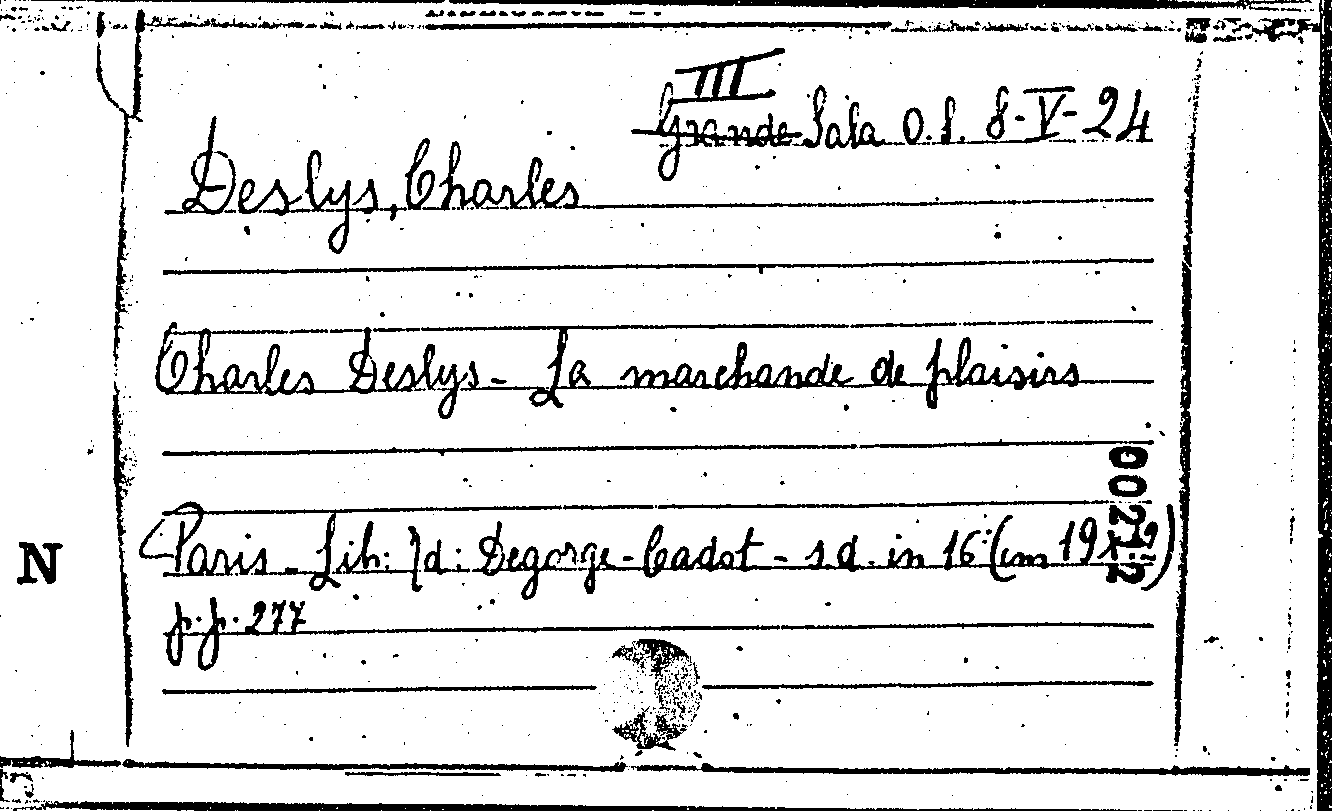 III
Grande Sala O.S. 8-V-24
Deslys, Charles
Charles Deslys - La marchande de plaisirs
Paris - Lib: Id: Degorge-Cadot - s.d. in 16º (cm
p.p. 277
00212
N